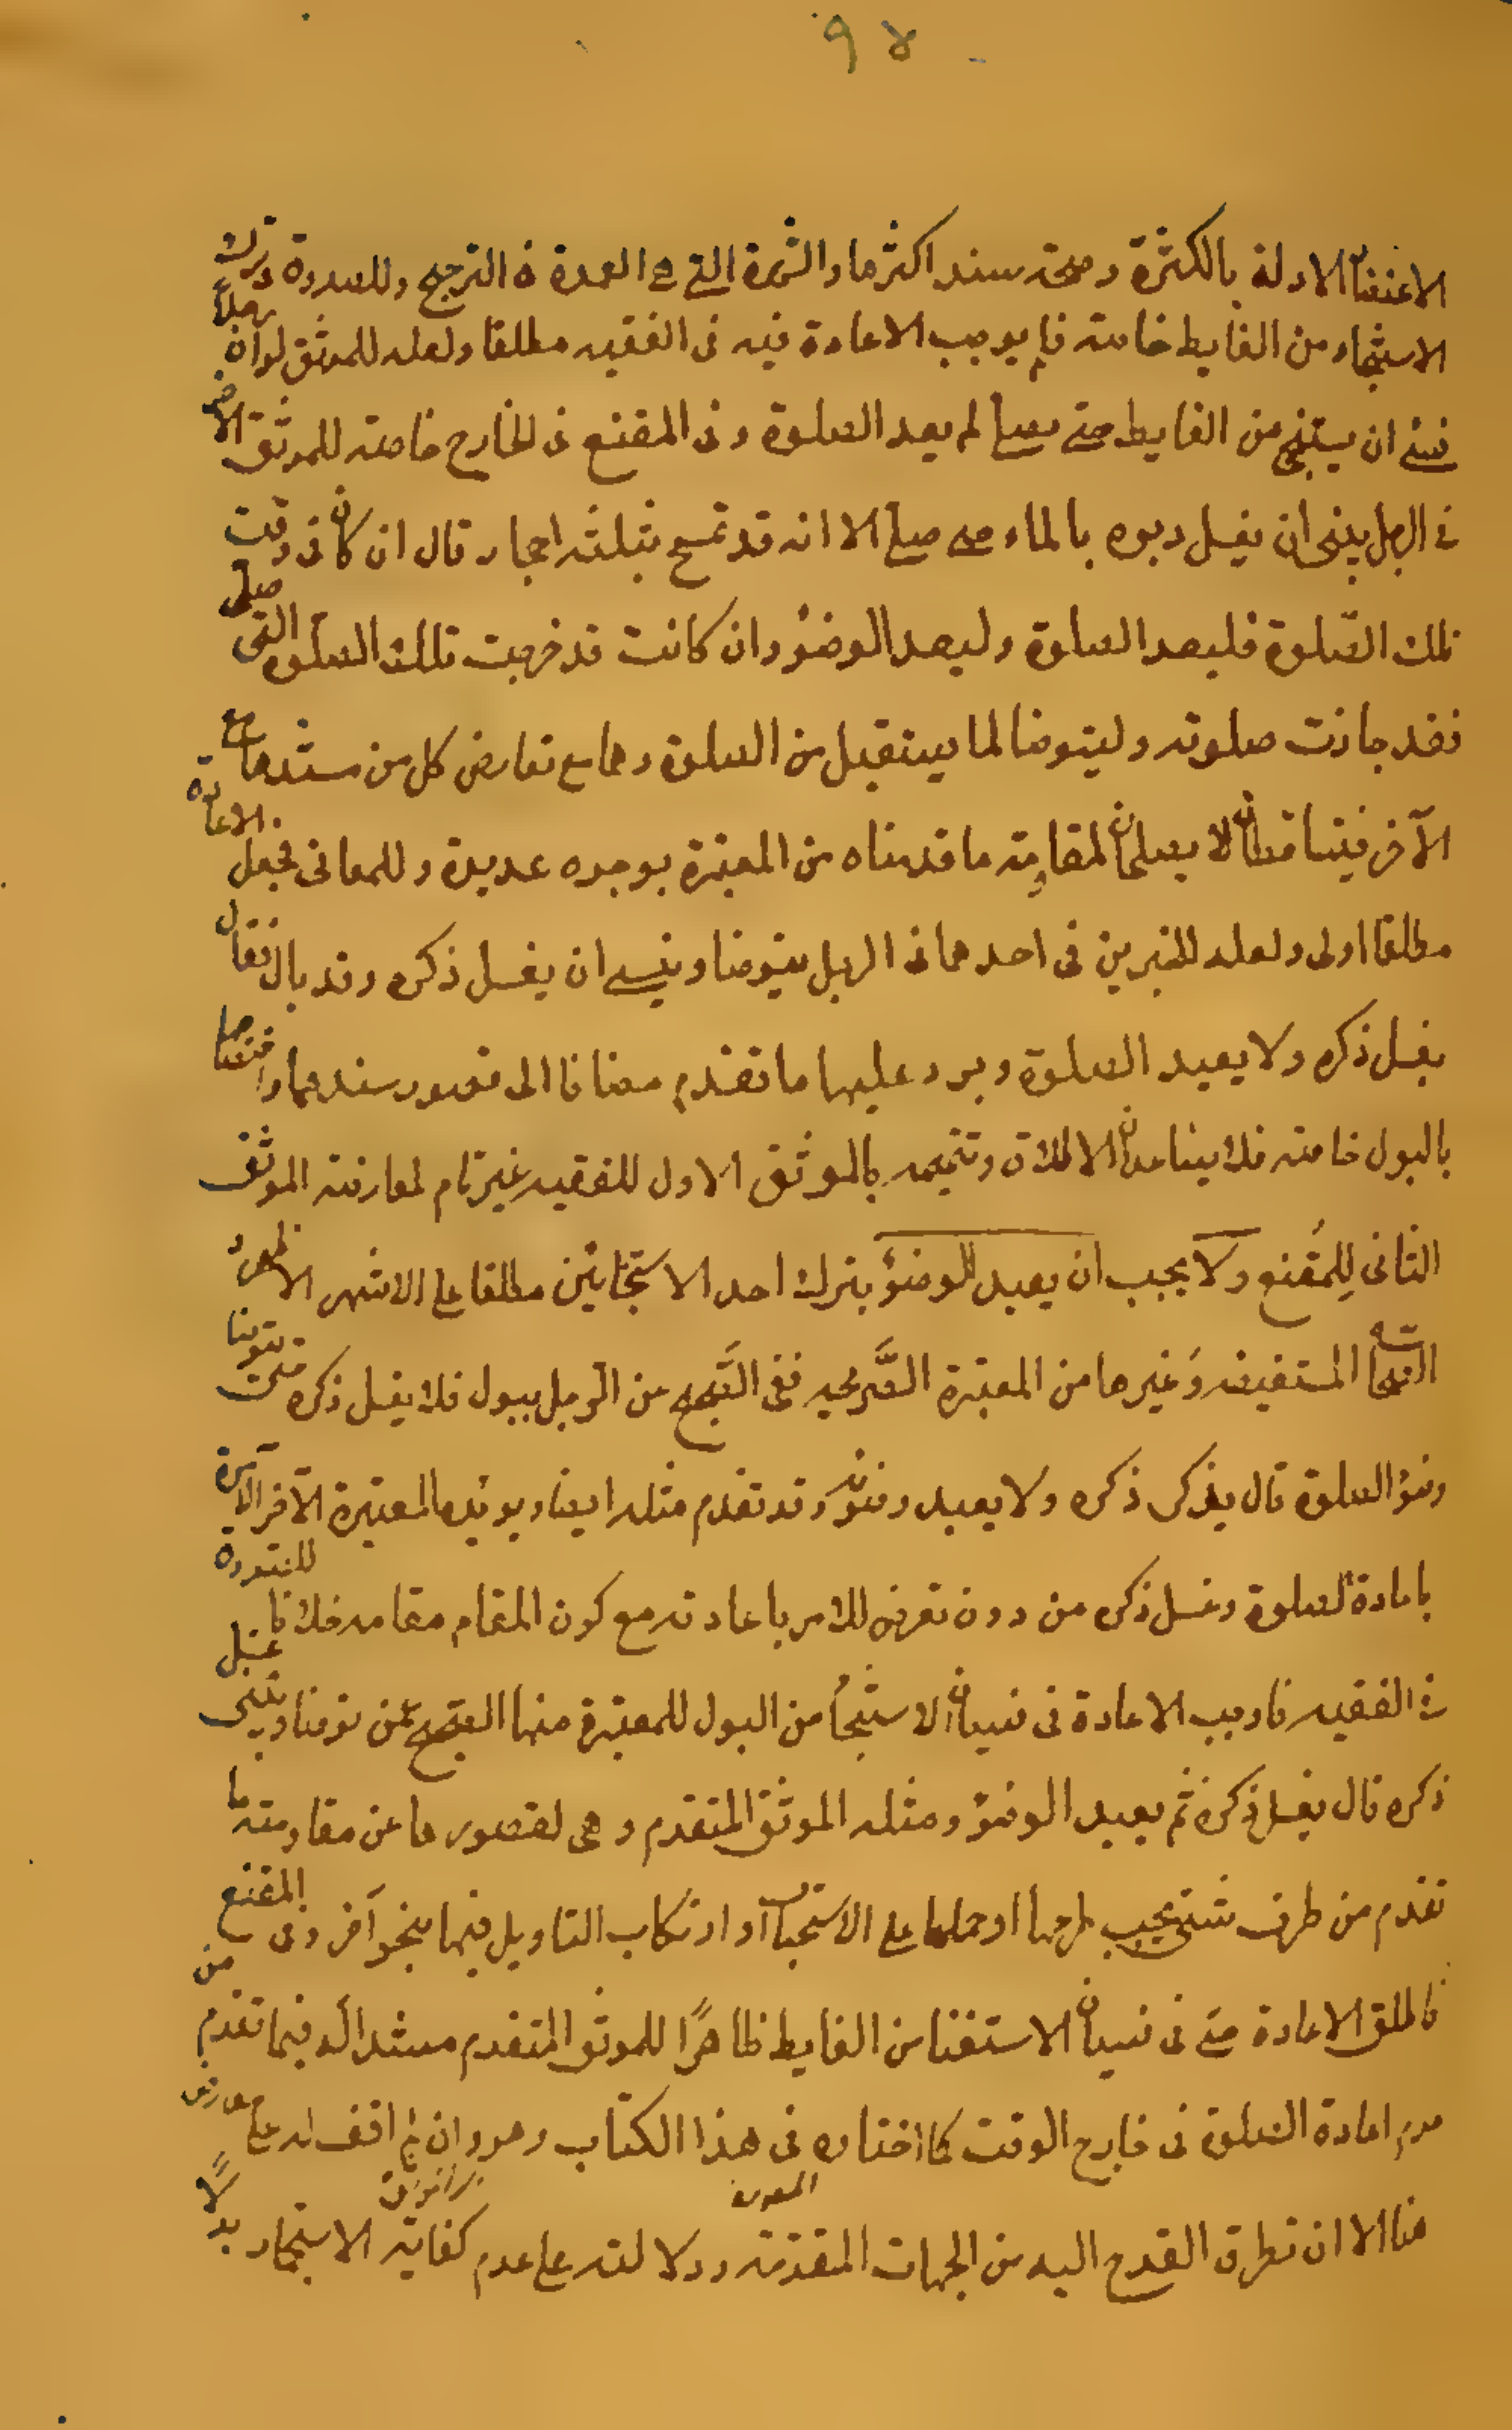 ٩٨
الاعتضاد الادلة بالكثرة وصحة سند اكثرها والشهرة التي هي العمدة في الترجيح وللصدوق وترك
الاستنجاء من الغايط خاصة فلم يوجب الاعادة فيه في الفقيه مطلقا ولعله للموثق لو ان رجلاً
نسي ان يستنجي من الغايط حتى يصلي لم يعد الصلوة وفي المقنع في الخارج خاصة للموثق الاخر
في الرجل ينسى ان يغسل دبره بالماء حتى صلى الا انه قد تمسح بثلثة احجار قال ان كان في وقت
تلك الصّلوة فليعد الصلوة وليعد الوضوء وان كانت قد خرجت تلك الصلوة التي صلى
فقد جازت صلوته وليتوضا لما يستقبل من الصلوة وهما مع تعارض كل من سندهما مع
الآخر فيتساقطان لا يصلحان لمقاومة ما قدمناه من المعتبرة بوجوه عديدة وللعماني فجعل الاعادة
مطلقا اولى ولعله للخبرين في احدهما في الرجل يتوضا وينسى ان يغسل ذكره وقد بال فقال
يغسل ذكره ولا يعيد الصلوة ويرد عليهما ما تقدم مضافا الى قصور سندهما واختصاصهما
بالبول خاصة فلا يساعدان الاطلاق وتتميمه بالموثق الاول للفقيه غير تام لمعارضة الموثق
الثاني للمُقنع ولا يجب ان يعيد الوضوء بترك احد الاستنجائين مطلقا على الاشهر الاظهر
الصحاح المستفيضه وَغيرها من المعتبرة الصَّريحه ففي الصَّحيح عن الرجل يبول فلا يغسل ذكره حتى يتوضا
وضوء الصلوة قال يغسل ذكره ولا يعيد وضوئه وقد تقدم مثله ايضا ويؤيده المعتبرة الآخر الآمرة
باعادة الصلوة وغسل ذكره من دون تعرض للامر باعادته مع كون المقام مقامه خلافا للصدوق
في الفقيه فاوجب الاعادة في نسيان الاستنجاء من البول للمعتبرة منها الصحيح عمن توضا وينسى غسل
ذكره قال يغسل ذكره ثم يعيد الوضوء ومثله الموثق المتقدم وهي لقصورها عن مقاومة ما
تقدم من طرف شتى يجب طرحها او حملها على الاستحباب او ارتكاب التاويل فيها بنحو آخر وفي المقنع
فاطلق الاعادة حتى في نسيان الاستنجا من الغايط ظاهرًا للموثق المتقدم مسندا له فيما تقدم من
عدم اعادة الصلوة في خارج الوقت كما اختاره في هذا الكتاب وهو وان لم اقف له على معارض
هنا الا ان تطرق القدح اليه من الجهات المتقدمة ودلالته على عدم كفاية الاستجمار بدلًا